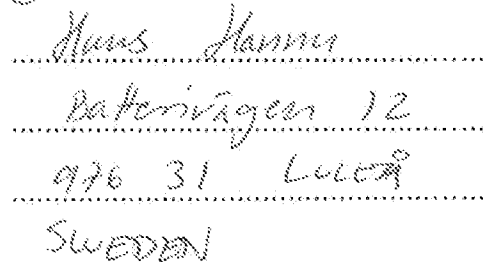 Hans Hannu
Batterivägen 12
976 31 LULEÅ
SWEDEN